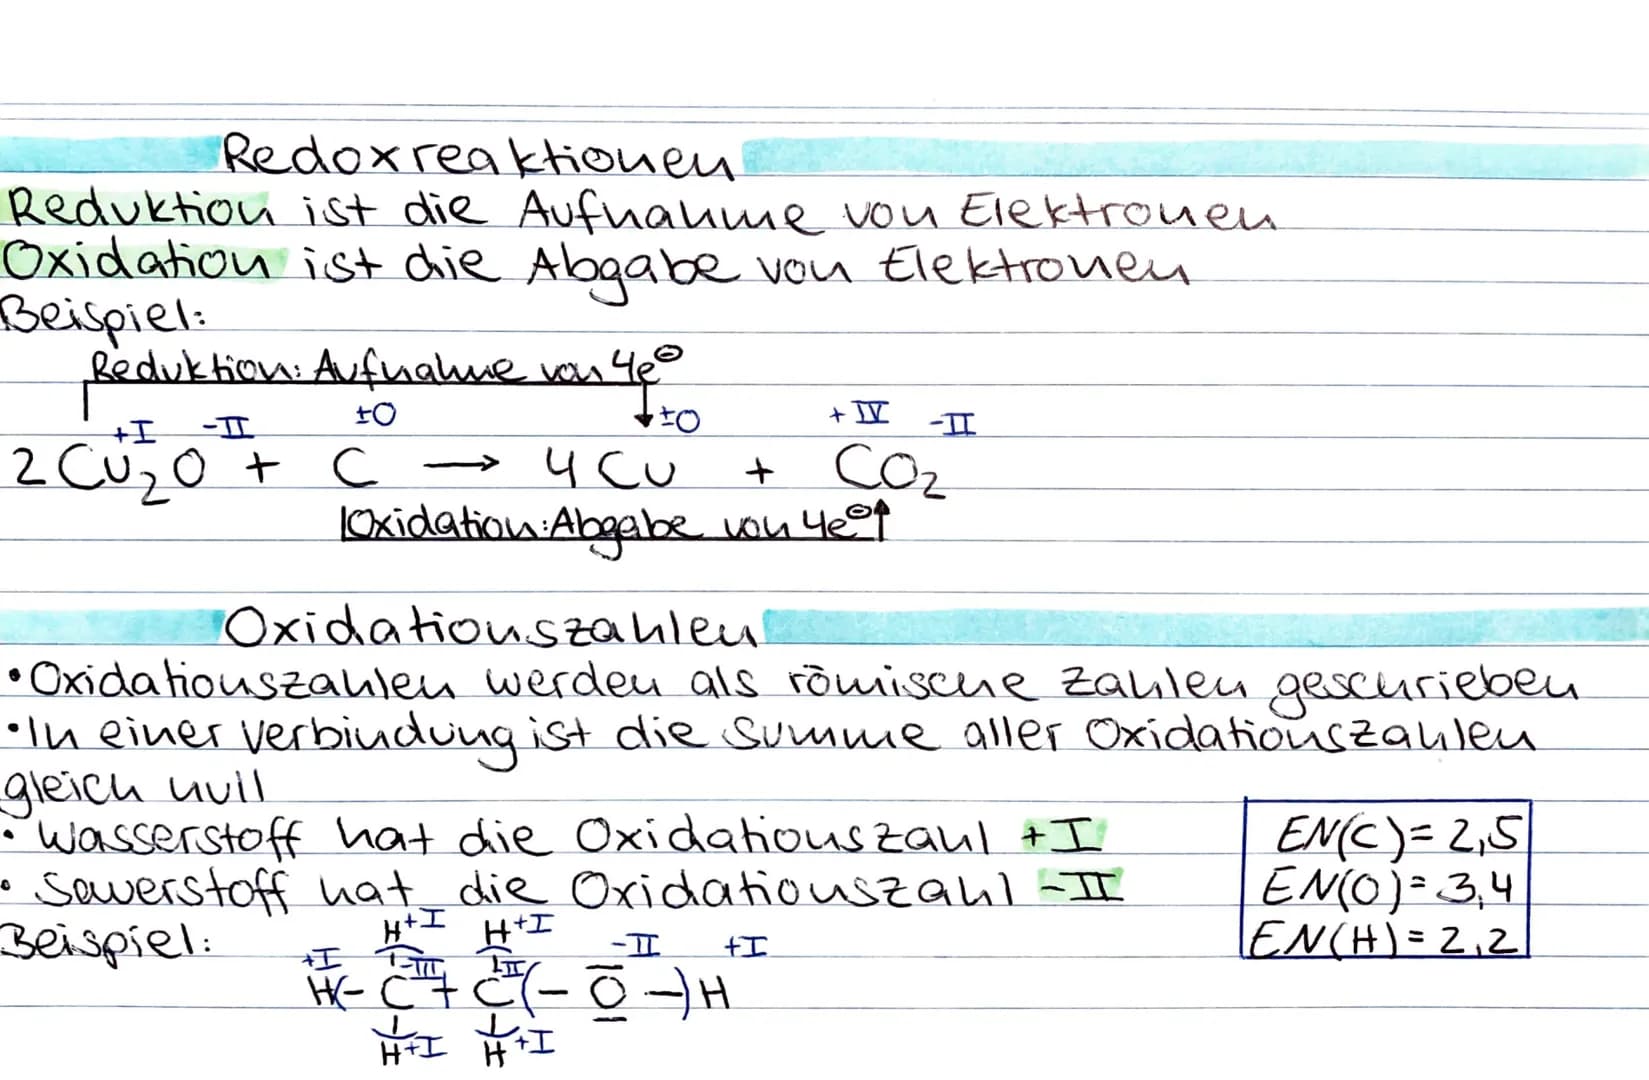 Redoxreaktionen
Reduktion ist die Aufnahme von Elektronen
Oxidation ist die Abgabe von Elektronen
Beispiel:
Reduktion: Aufnahme von 4e⊖
+I -II ±0 ±0 +IV -II
2 Cu₂O + C → 4 Cu + CO₂
Oxidation: Abgabe von 4e⊖
Oxidationszahlen
• Oxidationszahlen werden als römische Zahlen geschrieben
• In einer Verbindung ist die Summe aller Oxidationszahlen
gleich null
• Wasserstoff hat die Oxidationszahl +I
• Sauerstoff hat die Oxidationszahl -II
Beispiel:
H+I H+I
+I -III -II -II +I
H - C + C (- O -) H
H+I H+I
EN(C) = 2,5
EN(O) = 3,4
EN(H) = 2,2